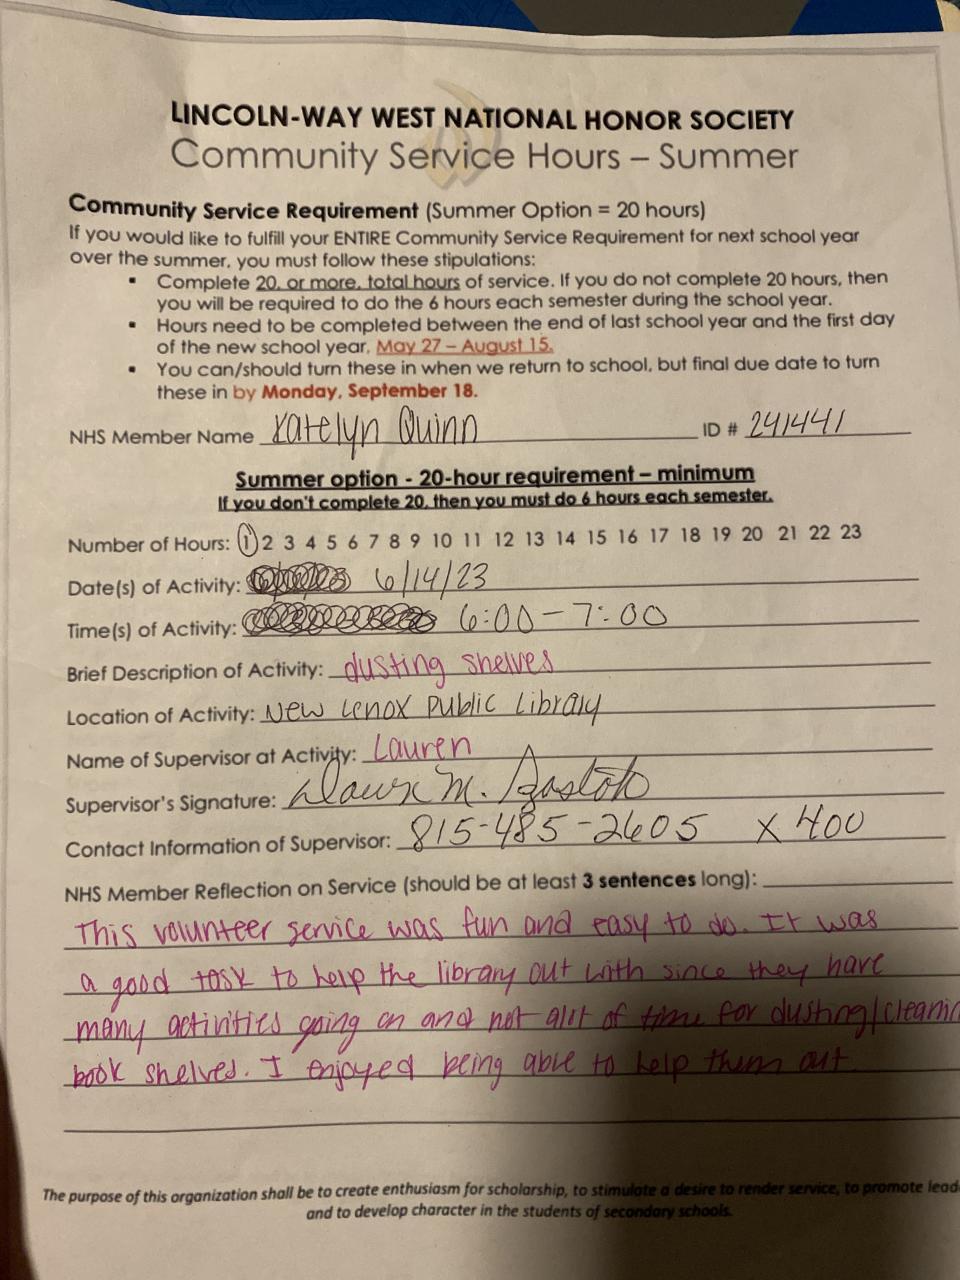 LINCOLN-WAY WEST NATIONAL HONOR SOCIETY
Community Service Hours – Summer
Community Service Requirement (Summer Option = 20 hours)
If you would like to fulfill your ENTIRE Community Service Requirement for next school year
over the summer, you must follow these stipulations:
▪ Complete 20, or more, total hours of service. If you do not complete 20 hours, then
you will be required to do the 6 hours each semester during the school year.
▪ Hours need to be completed between the end of last school year and the first day
of the new school year, May 27 – August 15.
▪ You can/should turn these in when we return to school, but final due date to turn
these in by Monday, September 18.
NHS Member Name Katelyn Quinn ID # 241441
Summer option - 20-hour requirement – minimum
If you don't complete 20, then you must do 6 hours each semester.
Number of Hours: 1 2 3 4 5 6 7 8 9 10 11 12 13 14 15 16 17 18 19 20 21 22 23
Date(s) of Activity: 6/14/23
Time(s) of Activity: 6:00 – 7:00
Brief Description of Activity: dusting shelves
Location of Activity: New Lenox Public Library
Name of Supervisor at Activity: Lauren
Supervisor's Signature: M.
Contact Information of Supervisor: 815-485-2605 x 400
NHS Member Reflection on Service (should be at least 3 sentences long):
This volunteer service was fun and easy to do. It was
a good task to help the library out with since they have
many activities going on and not alot of time for dusting/cleanin
book shelves. I enjoyed being able to help them out
The purpose of this organization shall be to create enthusiasm for scholarship, to stimulate a desire to render service, to promote lead
and to develop character in the students of secondary schools.